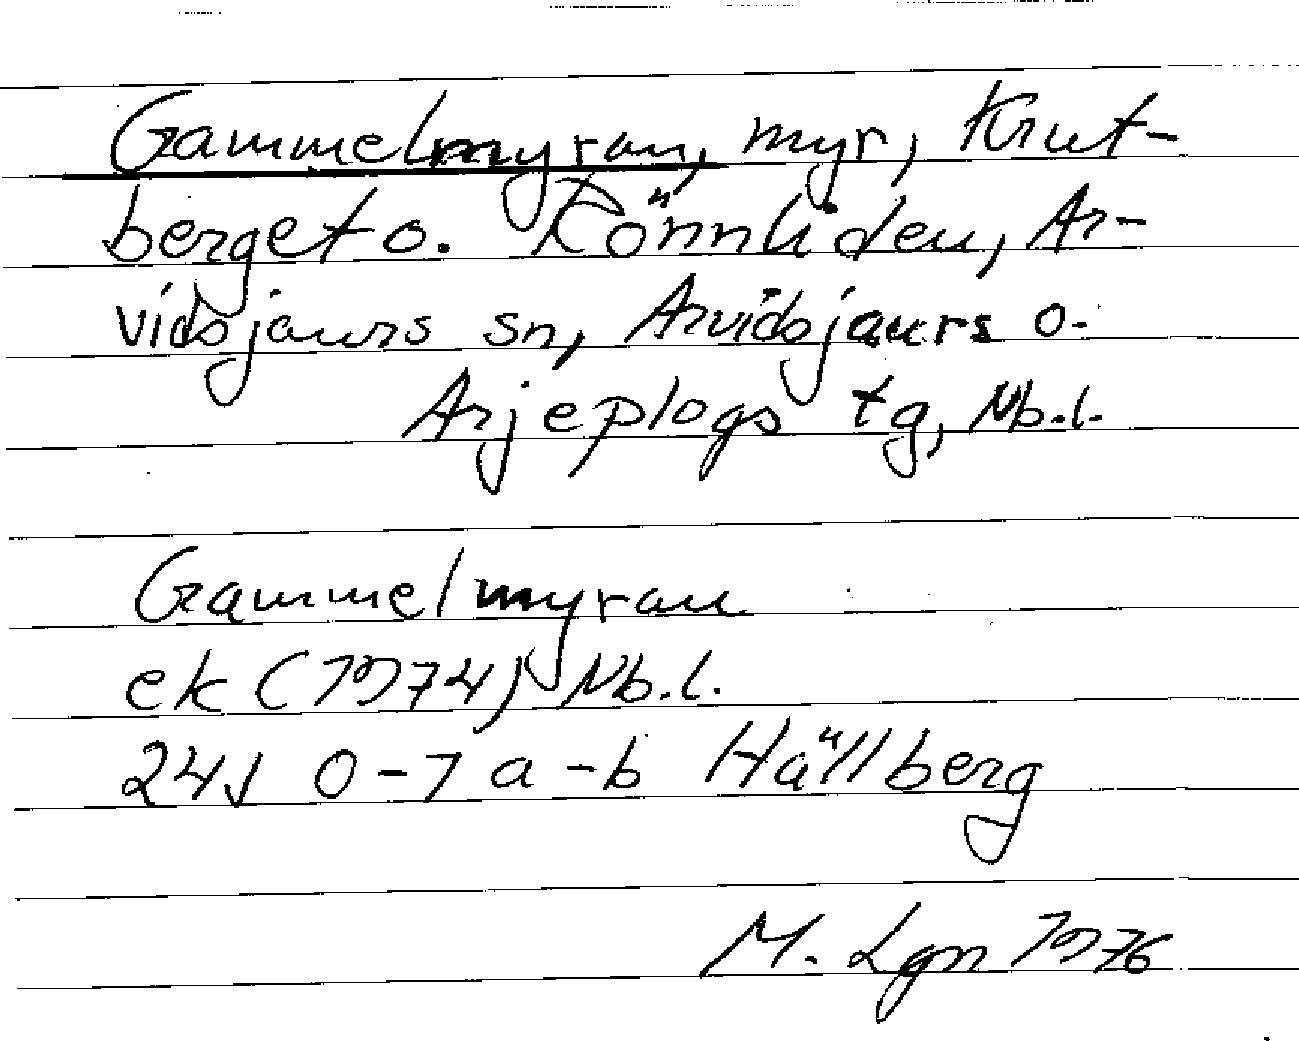 Gammelmyran, myr, Krut-
berget o. Rönnliden, Ar-
vidsjaurs sn, Arvidsjaurs o.
Arjeplogs tg, Nb.l.
Gammelmyran
ek (1974) Nb.l.
24J 0-1 a-b Hällberg
M. Lgn 1976